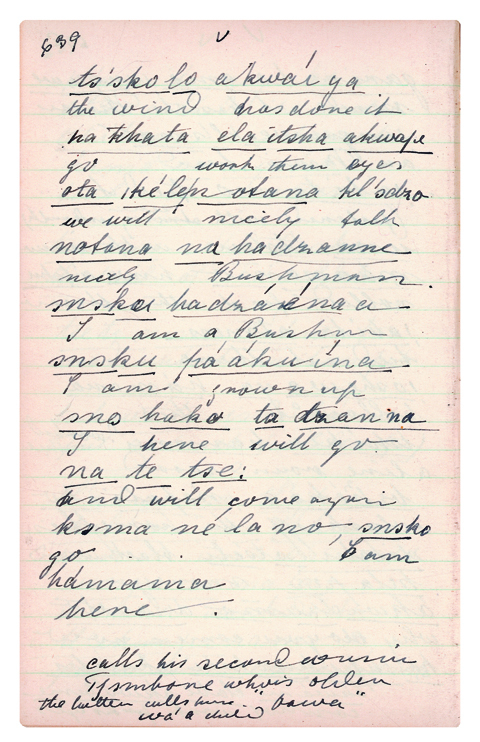 639
ts'sko lo akwái ya
the wind has done it
na khata ela itsha akwaje
go work them eyes
ota ikélen otana kl'sdzo
we will nicely talk
notana na hadzanne
nicely Bushman
snsku hadzáena a
I am a Bushm
snsku pá áku ína
I am grown up
sno hako ta dzanna
I here will go
na te tse:
and will come again
ksma né la no, snsko
go I am
hámama
here.
calls his second cousin
who is older
the latter calls him "bawa"